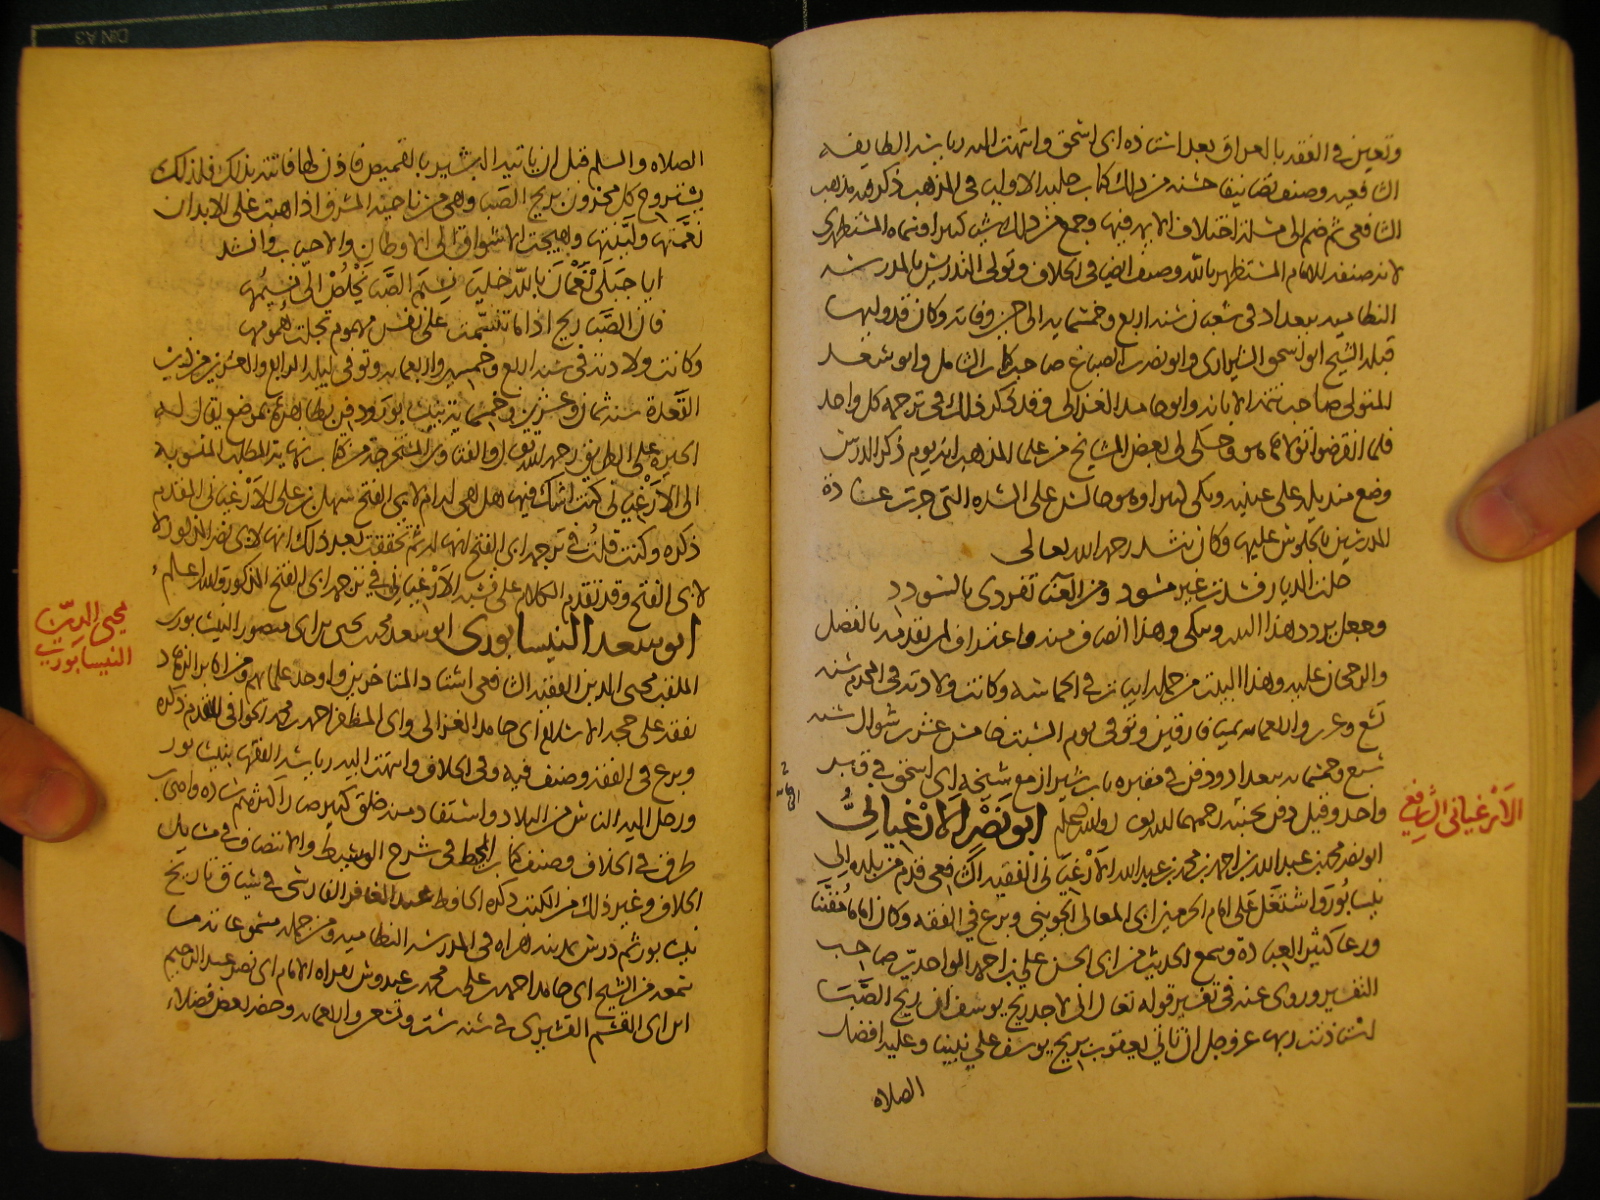 وتعين في الفقه بالعراق بعد استاذه ابي اسحق وانتهت اليه رياسة الطايفه
الشافعيه وصنف تصانيف حسنه من ذلك كتاب حليه الاولياء في المذهب ذكر فيه مذهب
الشافعي ثم ضم الى كل مسئلة اختلاف الايمه فيها وجمع من ذلك شيا كثيرا وسماه المستظهري
لانه صنفه للامام المستظهر بالله وصنف ايضا في الخلاف وتولى التدريس بالمدرسه
النظاميه ببغداد في شعبان سنه اربع وخمسمايه الى حين وفاته وكان قد وليها
قبله الشيخ ابو اسحق الشيرازي وابو نصر بن الصباغ صاحب كتاب الشامل وابو سعد
المتولي صاحب تتمه الابانه وابو حامد الغزالي وقد ذكر ذلك في ترجمه كل واحد
فلما انقرضوا تولاها هو وحكى لي بعض المشايخ من علما المذهب انه يوم ذكر الدرس
وضع منديله على عينيه وبكى كثيرا وهو جالس على السده التي جرت عادة
المدرسين بالجلوس عليها وكان ينشد رحمه الله تعالى
خلت الديار فسدت غير مسود ومن العنا تفردي بالسودد
وجعل يردد هذا البيت ويبكي وهذا انصاف منه واعتراف لمن تقدمه بالفضل
والرجحان عليه وهذا البيت من جمله ابيات في الحماسه وكانت ولادته في المحرم سنه
تسع وعشرين واربعمايه بميافارقين وتوفي يوم السبت خامس عشرين شوال سنه
سبع وخمسمايه ببغداد ودفن في مقبره باب شيراز مع شيخه ابي اسحق في قبر
واحد وقيل دفن بجنبه رحمهما الله تعالى والله اعلم ابو نصر الارغياني
ابو نصر محمد بن عبد الله بن احمد بن محمد بن عبد الله الارغياني الفقيه الشافعي قدم من بلده الى
نيسابور واشتغل على امام الحرمين ابي المعالي الجويني وبرع في الفقه وكان اماما مفننا
ورعا كثير العبادة وسمع الحديث من ابي الحسن علي بن احمد الواحدي صاحب
التفسير وروى عنه في تفسير قوله تعالى اني لاجد ريح يوسف ان ريح الصبا
استاذنت ربها عز وجل ان تاتي يعقوب بريح يوسف على نبينا وعليه افضل
الصلاه
الارغياني الشافعي
الصلاه والسلم قبل ان ياتيه البشير بالقميص فاذن لها فاتته بذلك فلذلك
يستروح كل محزون بريح الصبا وهي من ناحيه المشرق اذا هبت على الابدان
نعمتها ولينتها وهيجت الاشواق الى الاوطان والاحباب وانشد
ايا جبلي نعمان بالله خليا نسيم الصبا يخلص الي نسيمها
فان الصبا ريح اذا ما تنسمت على نفس مهموم تجلت همومها
وكانت ولادته في سنه اربع وخمسين واربعمايه وتوفي ليله الرابع والعشرين من ذي
القعدة سنه ثمان وعشرين وخمسمايه بنيسابور ودفن بظاهرها بموضع يقال له
الحيره على الطريق رحمه الله تعالى والفتاوى المستخرجة من كتاب نهاية المطلب المنسوبه
الى الارغياني كنت اشك فيها هل هي له ام لابي الفتح سهل بن علي الارغياني المقدم
ذكره وكنت قلت في ترجمه ابي الفتح انها له ثم تحققت بعد ذلك انها لابي نصر المذكور لا
لابي الفتح وقد تقدم الكلام على نسبه الارغياني في ترجمه ابي الفتح المذكور والله اعلم
ابو سعد النيسابوري ابو سعد محمد بن يحيى بن ابي منصور النيسابوري
الملقب محيى الدين الفقيه الشافعي استاد المتاخرين واوحدهم علما وزهدا
تفقه على حجه الاسلام ابي حامد الغزالي وابي المظفر احمد بن محمد الخوافي المقدم ذكره
وبرع في الفقه وصنف فيه وفي الخلاف وانتهت اليه رياسه الفقها بنيسابور
ورحل اليه الناس من البلاد واستفاد منه خلق كثير صار اكثرهم ساده واصحاب
طرق في الخلاف وصنف كتاب المحيط في شرح الوسيط والانتصاف في مسايل
الخلاف وغير ذلك من الكتب ذكره الحافظ عبد الغافر الفارسي في سياق تاريخ
نيسابور ثم درس بمدينه هراه في المدرسه النظاميه ومن جمله مسموعاته ما
سمعه من الشيخ ابي حامد احمد بن علي بن محمد بن عبدوس بقراءه الامام ابي نصر عبد الرحيم
ابن ابي القسم القشيري في سنه ست وتسعين واربعمايه وحضر بعض فضلاء
محيى الدين
النيسابوري